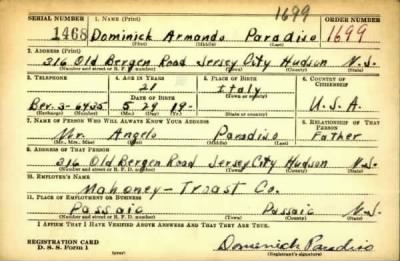 1699
SERIAL NUMBER 1. NAME (Print) ORDER NUMBER
1468 Dominick Armando Paradiso 1699
(First) (Middle) (Last)
2. ADDRESS (Print)
316 Old Bergen Road Jersey City Hudson N.J.
(Number and street or R. F. D. number) (Town) (County) (State)
3. TELEPHONE 4. AGE IN YEARS 5. PLACE OF BIRTH 6. COUNTRY OF CITIZENSHIP
21 Italy
DATE OF BIRTH (Town or county)
Ber. 3-6435 5 29 19- U.S.A.
(Exchange) (Number) (Mo.) (Day) (Yr.) (State or country)
7. NAME OF PERSON WHO WILL ALWAYS KNOW YOUR ADDRESS 8. RELATIONSHIP OF THAT PERSON
Mr. Angelo Paradiso Father
(Mr., Mrs., Miss) (First) (Middle) (Last)
9. ADDRESS OF THAT PERSON
316 Old Bergen Road Jersey City Hudson N.J.
(Number and street or R. F. D. number) (Town) (County) (State)
10. EMPLOYER'S NAME
Mahoney-Troast Co.
11. PLACE OF EMPLOYMENT OR BUSINESS
Passaic Passaic N.J.
(Number and street or R. F. D. number) (Town) (County) (State)
I AFFIRM THAT I HAVE VERIFIED ABOVE ANSWERS AND THAT THEY ARE TRUE.
REGISTRATION CARD
D. S. S. Form 1 (over) Domenick Paradiso
(Registrant's signature)